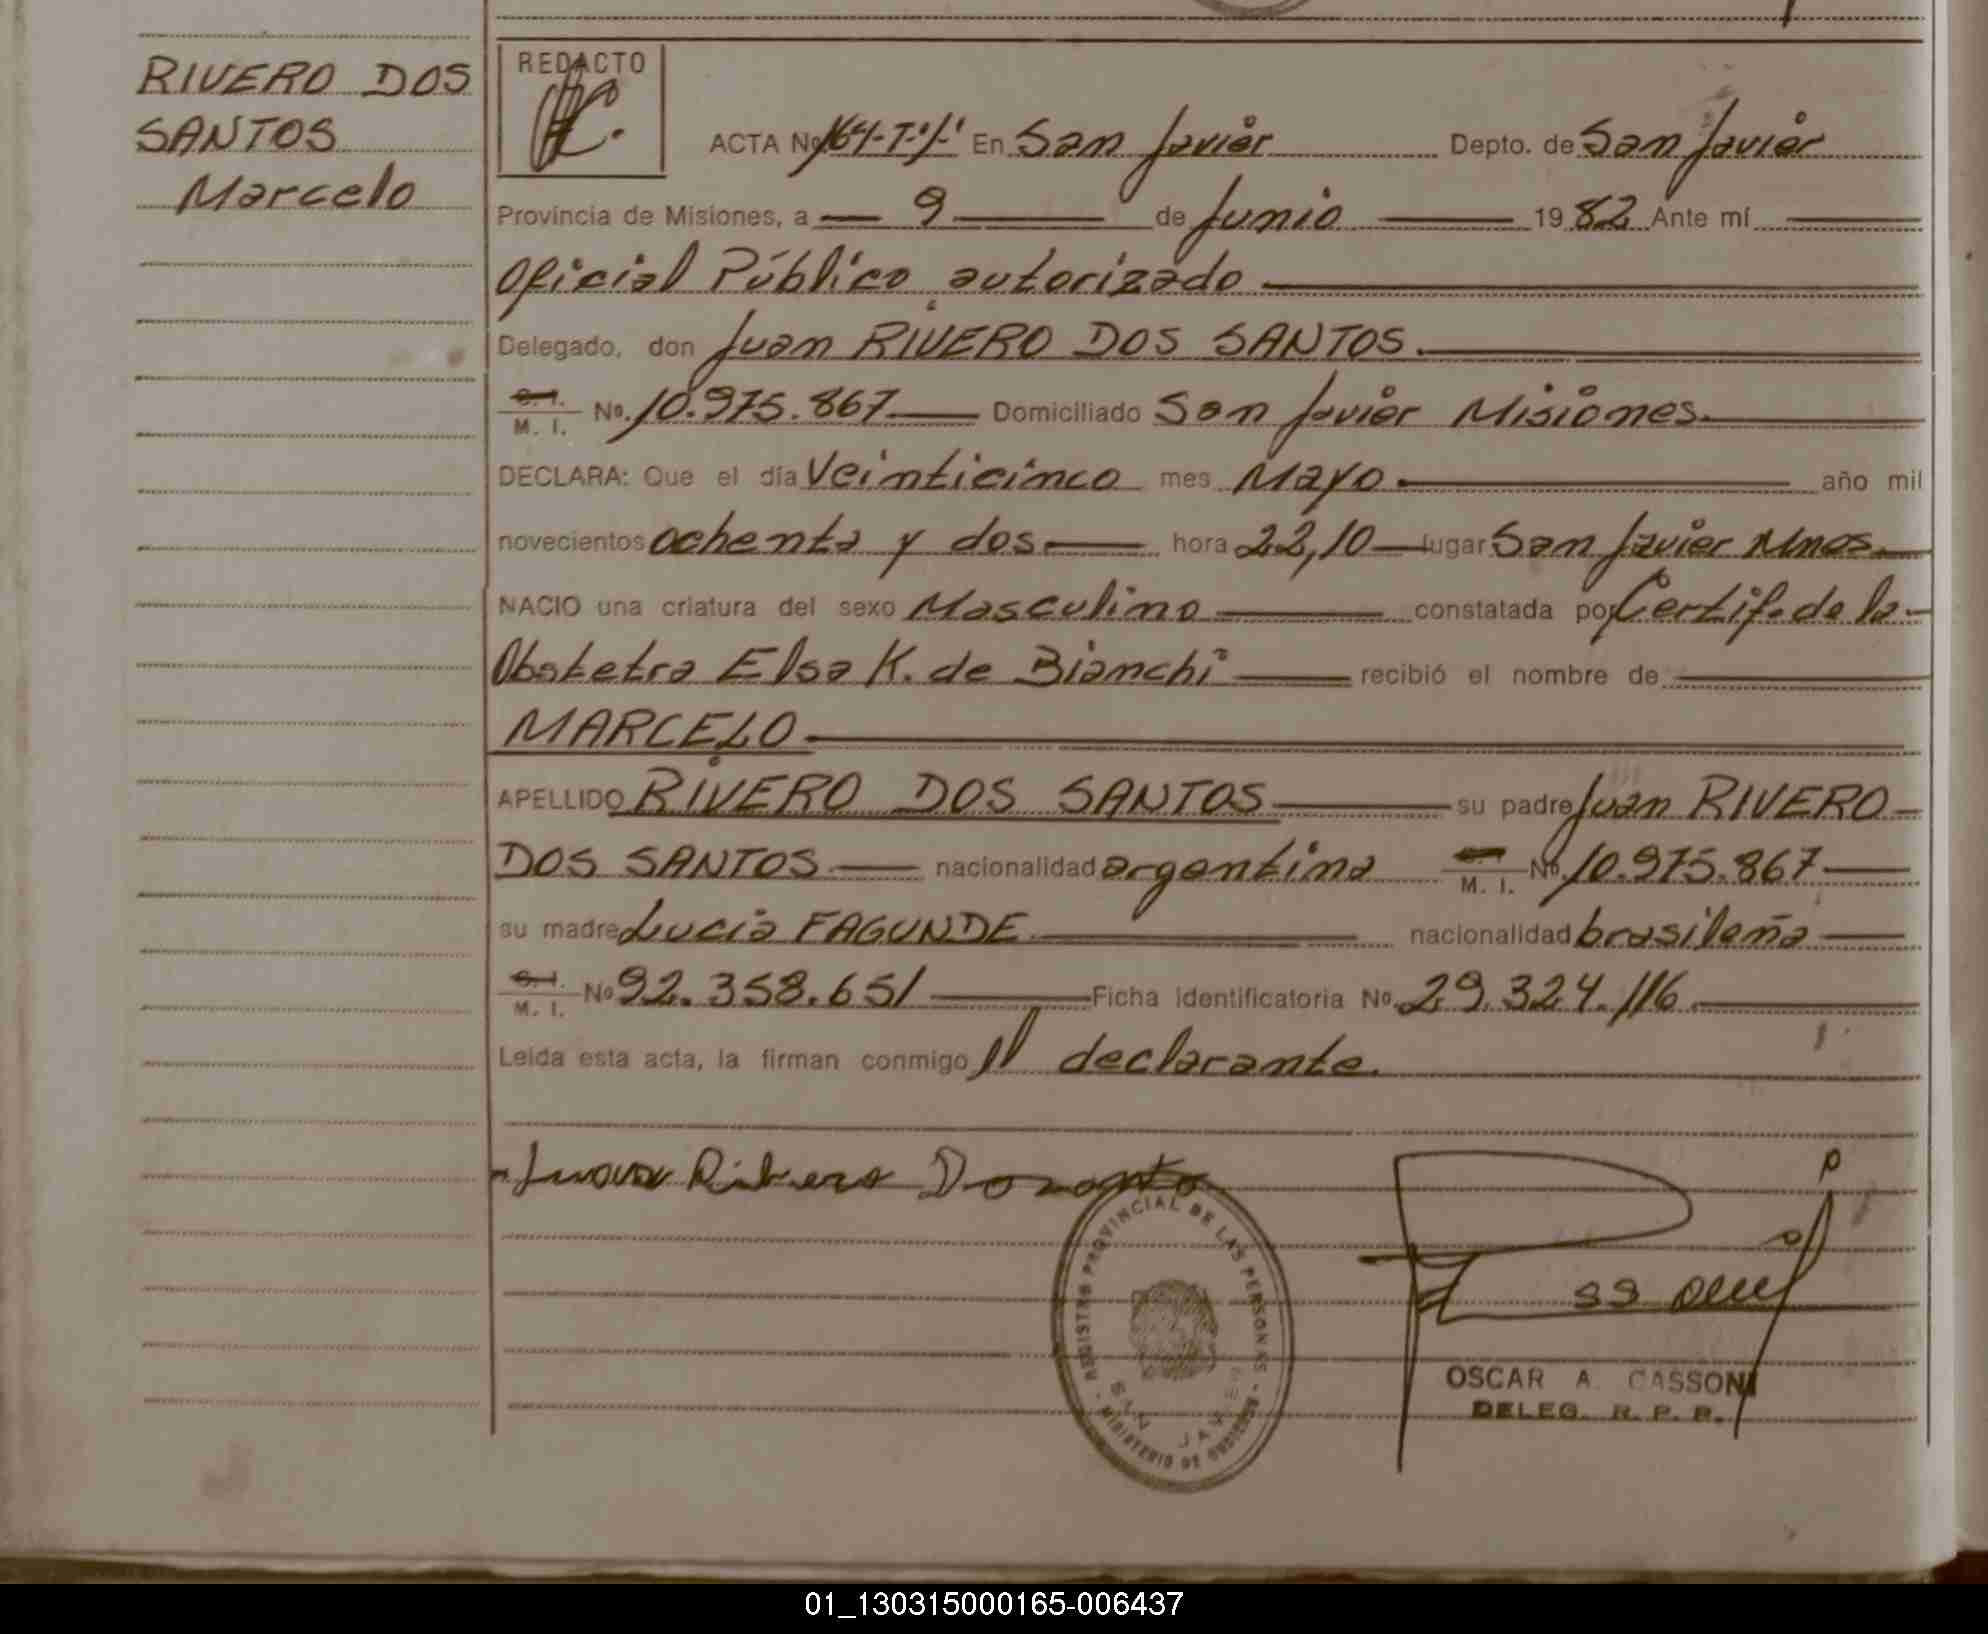 RIVERO DOS
SANTOS
Marcelo
REDACTO
ACTA No 164-T-I- En San Javier Depto. de San Javier
Provincia de Misiones, a 9 de Junio 1982 Ante mí
Oficial Público autorizado
Delegado, don Juan RIVERO DOS SANTOS.
M. I. No. 10.975.867 Domiciliado San Javier Misiones.
DECLARA: Que el día Veinticinco mes Mayo año mil
novecientos ochenta y dos hora 22,10 lugar San Javier Mnes.
NACIO una criatura del sexo Masculino constatada por Certif. de la
Obstetra Elsa K. de Bianchi recibió el nombre de
MARCELO
APELLIDO RIVERO DOS SANTOS su padre Juan RIVERO
DOS SANTOS nacionalidad argentina M. I. No. 10.975.867
su madre Lucia FAGUNDE nacionalidad brasileña
M. I. No 92.358.651 Ficha identificatoria No. 29.324.116.
Leida esta acta, la firman conmigo el declarante.
Juan Ribero
REGISTRO PROVINCIAL DE LAS PERSONAS
SAN JAVIER
MINISTERIO DE GOBIERNO
OSCAR A. CASSONI
DELEG. R. P. P.
01_130315000165-006437